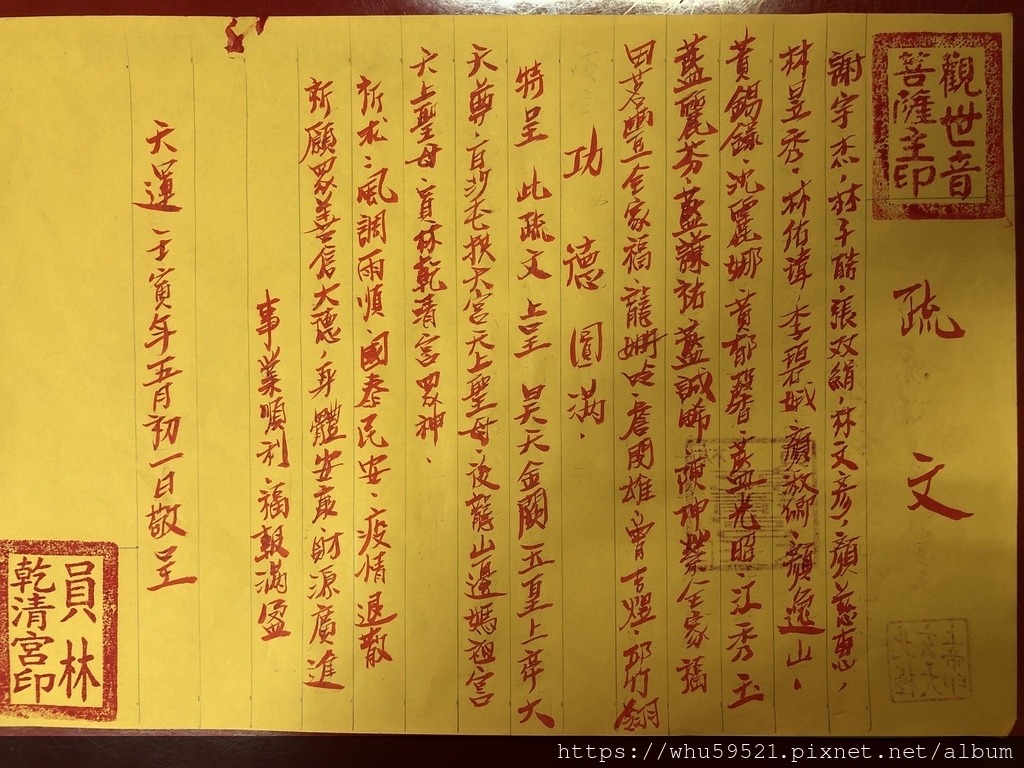 觀世音
菩薩主印
疏文
謝宇杰、林子酷、張双絹、林文彥、顏慈惠、
林昱秀、林佑諱、李碧娥、顏淑卿、顏逸山、
黃錫鎵、沈麗娜、黃郁馨、藍光照、江秀玉
藍麗芬、藍謙祐、藍誠晞、陳坤榮全家福
田茗豐全家福、龍姍吟、詹閔雄、曾吉熠、邱竹翎
功德圓滿、
特呈 此疏文 上呈 昊天金闕玉皇上帝大
天尊、白沙屯拱天宮天上聖母、後龍山邊媽祖宮
天上聖母、員林乾清宮眾神、
祈求:風調雨順、國泰民安、疫情退散
祈願眾善信大德、身體安康、財源廣進
事業順利、福報滿盈
天運壬寅年五月初一日敬呈
員林
乾清宮印
https://whu59521.pixnet.net/album